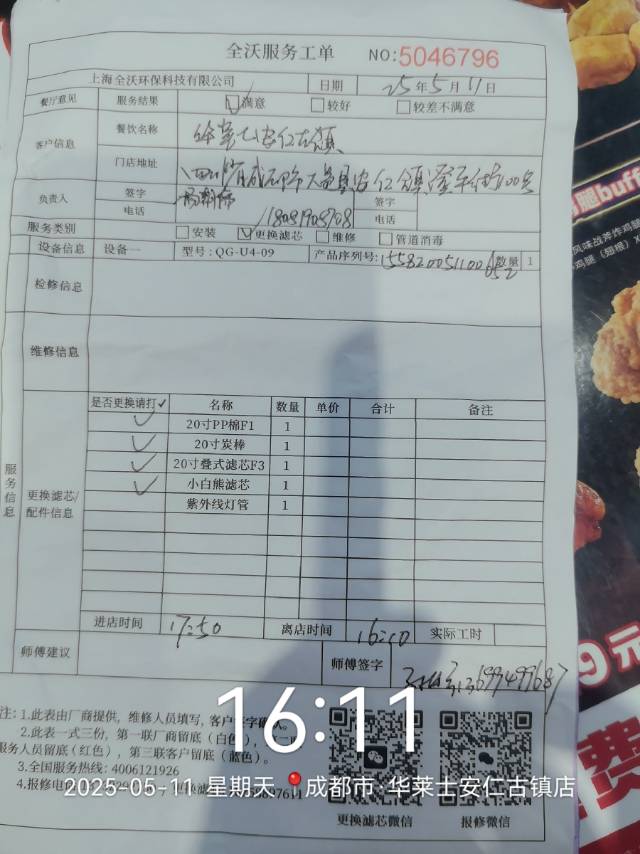 全沃服务工单 NO:5046796
上海全沃环保科技有限公司 日期 25年5月11日
餐厅意见 服务结果 满意 较好 较差不满意
客户信息 餐饮名称 华莱士安仁古镇
门店地址 四川省成都市大邑县安仁镇
负责人 签字 签字
电话 电话
服务类别 安装 更换滤芯 维修 管道消毒
设备信息 设备一 型号:QG-U4-09 产品序列号: 数量 1
检修信息
维修信息
服务信息
更换滤芯/配件信息
是否更换请打✓ 名称 数量 单价 合计 备注
✓ 20寸PP棉F1 1
✓ 20寸炭棒 1
✓ 20寸叠式滤芯F3 1
✓ 小白熊滤芯 1
紫外线灯管 1
进店时间 离店时间 实际工时
师傅建议 师傅签字
注:1.此表由厂商提供，维修人员填写，客户
2.此表一式三份，第一联厂商留底（白色），
服务人员留底（红色），第三联客户留底（蓝色）。
3.全国服务热线:4006121926
4.报修电
更换滤芯微信 报修微信
16:11
2025-05-11 星期天 成都市·华莱士安仁古镇店
腿buff
风味战斧炸鸡腿
9元
费